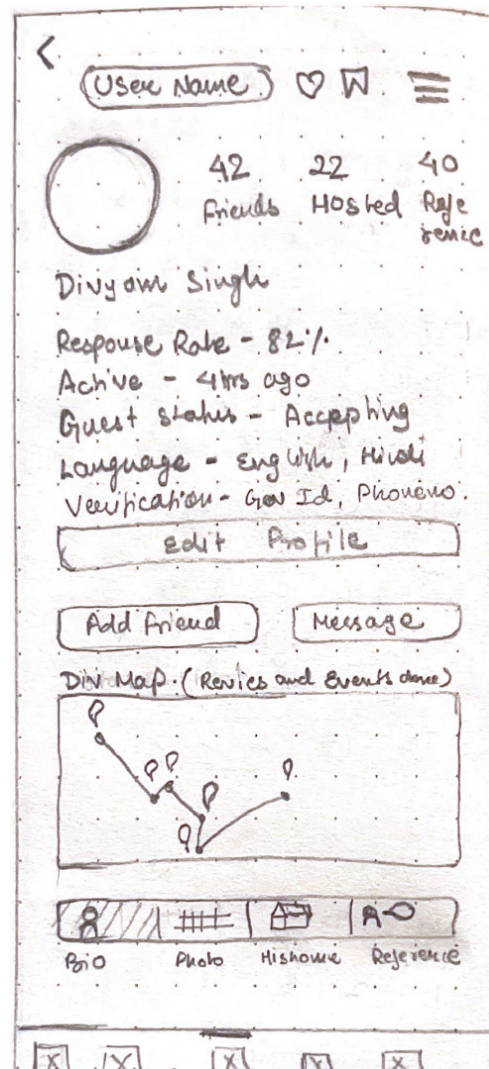 User Name
42 22 40
Friends Hosted Refe
rence
Divyam Singh
Response Rate - 82%.
Active - 4hrs ago
Guest status - Accepting
Language - English, Hindi
Verification - Gov Id, Phoneno.
Edit Profile
Add friend Message
Div Map. (Revies and Events done)
Bio Photo Hishome Reference